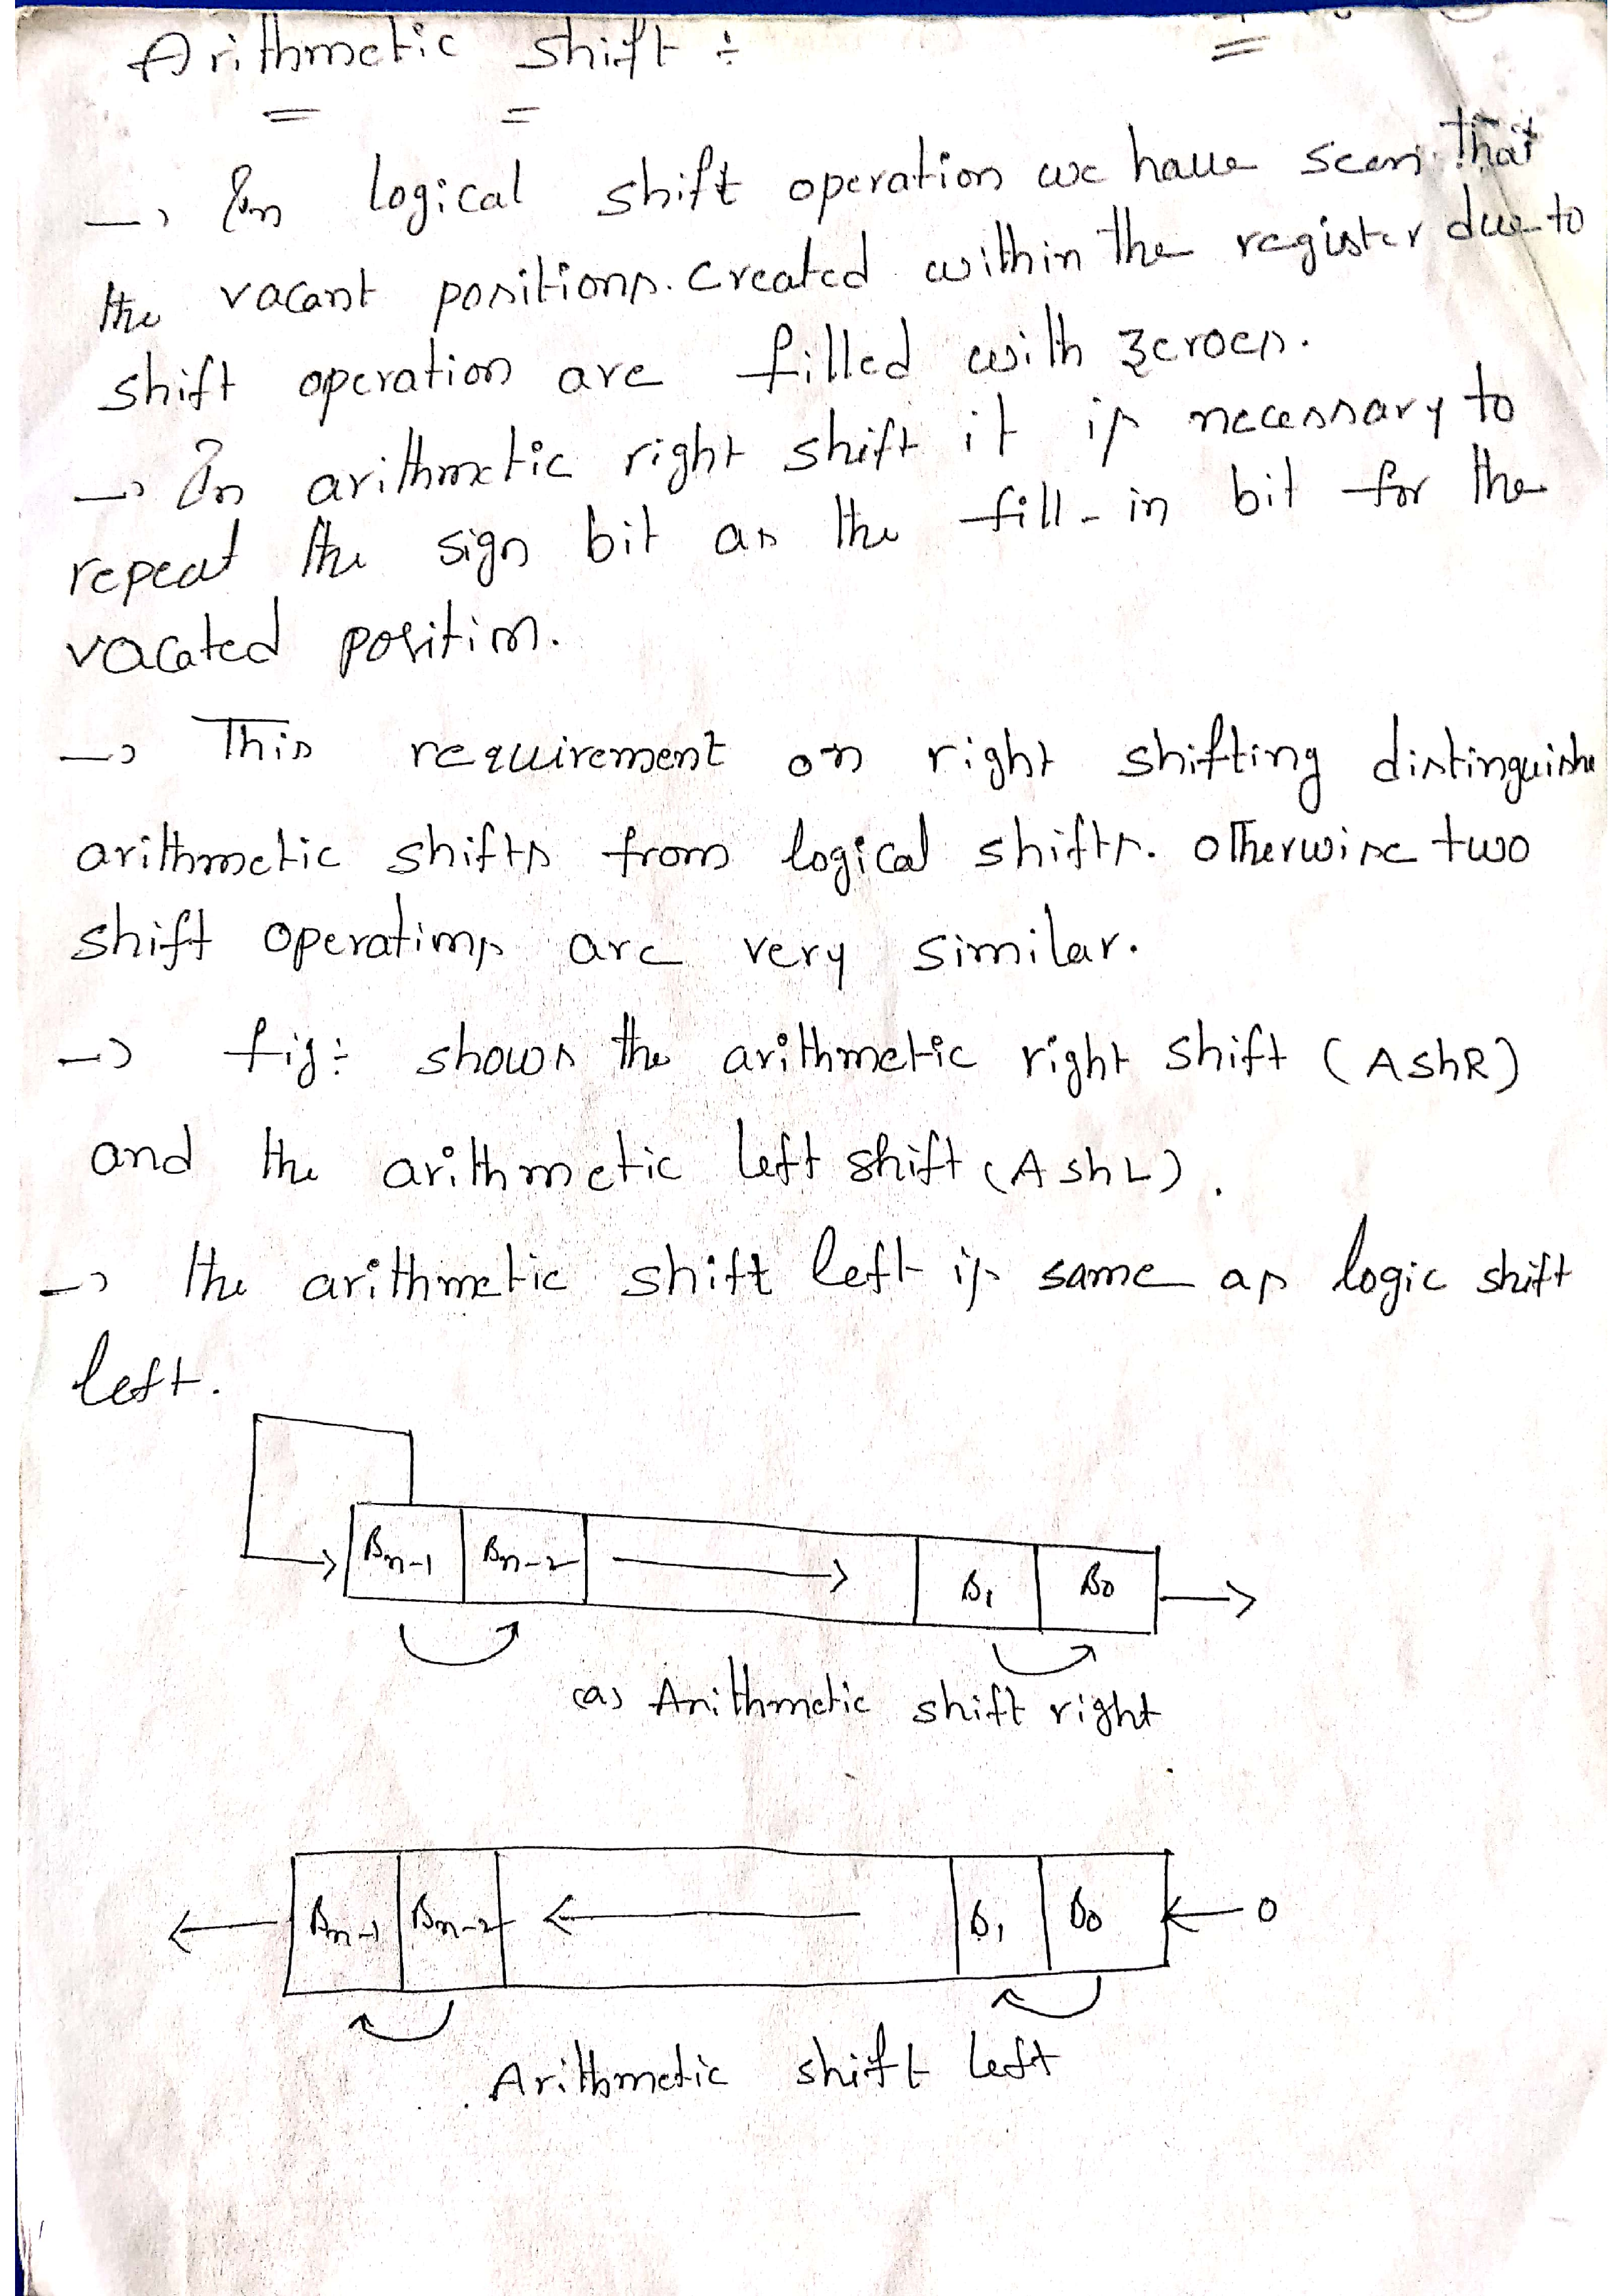 Arithmetic shift :
→ In logical shift operation we have seen that
the vacant positions. created within the register due to
shift operation are filled with zeroes.
→ In arithmetic right shift it is necessary to
repeat the sign bit as the fill-in bit for the
vacated position.
→ This requirement on right shifting distinguishe
arithmetic shifts from logical shifts. otherwise two
shift operations are very similar.
→ fig: shows the arithmetic right shift (AshR)
and the arithmetic left shift (AshL).
→ the arithmetic shift left is same as logic shift
left.
Bn-1 Bn-2 → B1 B0 →
(a) Arithmetic shift right
← Bn-1 Bn-2 ← B1 B0 ← 0
Arithmetic shift left